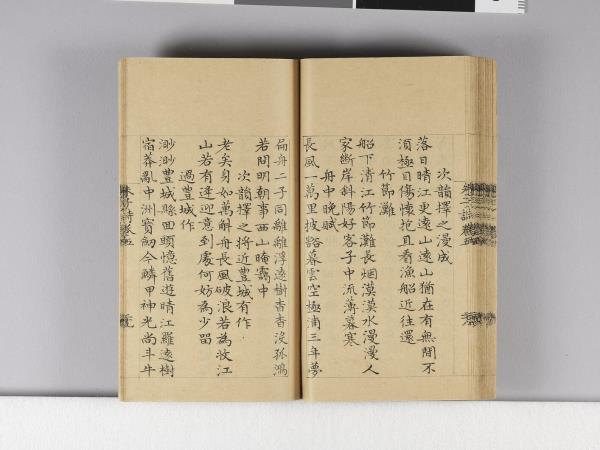 次韻擇之漫成
落日晴江更遠山遠山猶在有無間不
須極目傷懷抱且看漁船近往還
竹節灘
船下清江竹節灘長烟漠漠水漫漫人
家斷岸斜陽好客子中流薄暮寒
舟中晚賦
長風一萬里披豁暮雲空極浦三年夢
扁舟二子同離離浮遠樹杳杳沒孤鴻
若問明朝事西山晻靄中
次韻擇之將近豐城有作
老矣身如萬斛舟長風破浪若為收江
山若有逢迎意到處何妨為少留
過豐城作
渺渺豐城縣回頭憶舊遊晴江羅遠樹
宿莽亂中洲寶劒今鱗甲神光尚斗牛